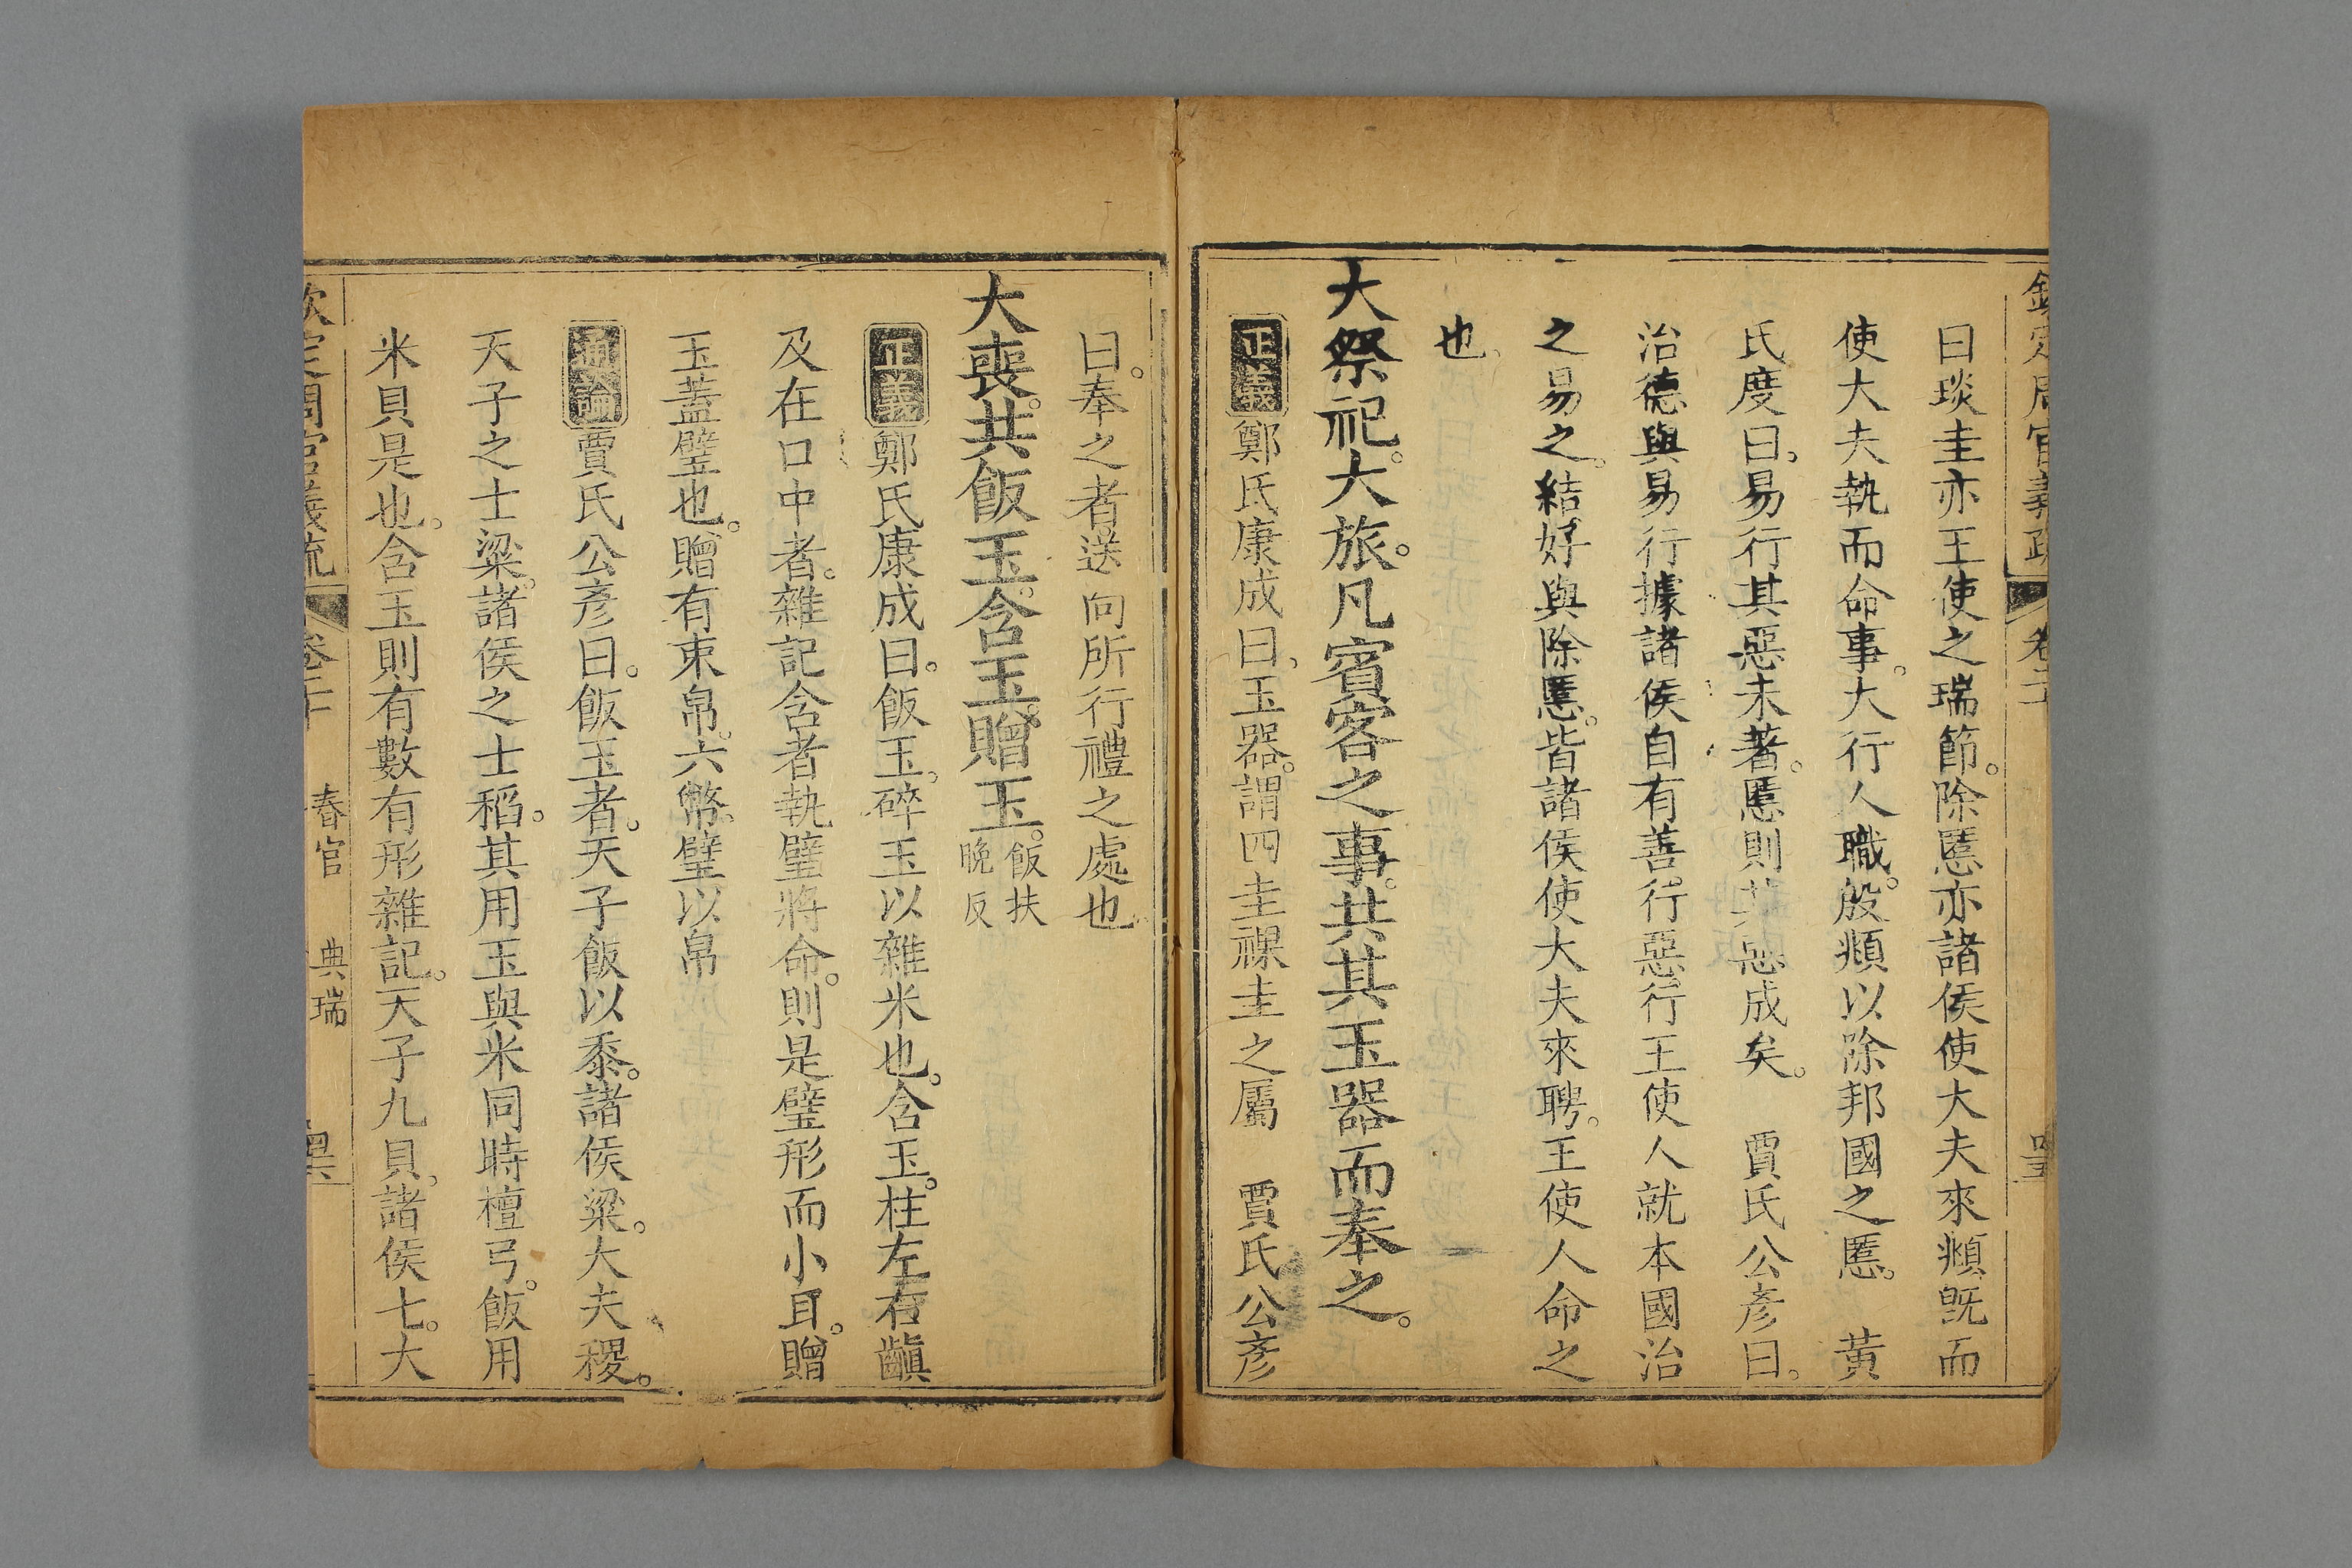 欽定周官義疏 卷二十
曰琰圭亦王使之瑞節。除慝亦諸侯使大夫來頫旣而
使大夫執而命事。大行人職。殷頫以除邦國之慝。 黃
氏度曰。易行其惡未著。慝則其惡成矣。 賈氏公彥曰。
治德與易行據諸侯自有善行惡行王使人就本國治
之易之。結好與除慝。皆諸侯使大夫來聘。王使人命之
也。
大祭祀。大旅。凡賓客之事。共其玉器而奉之。
正義鄭氏康成曰。玉器。謂四圭祼圭之屬 賈氏公彥
曰。奉之者送向所行禮之處也
大喪。共飯玉。含玉。贈玉。飯扶晚反
正義鄭氏康成曰。飯玉。碎玉以雜米也。含玉。柱左右齻
及在口中者。雜記含者執璧將命。則是璧形而小耳。贈
玉蓋璧也。贈有束帛。六幣。璧以帛
通論賈氏公彥曰。飯玉者。天子飯以黍。諸侯粱。大夫稷。
天子之士粱。諸侯之士稻。其用玉與米同時檀弓。飯用
米貝是也。含玉則有數有形雜記。天子九貝。諸侯七。大
欽定周官義疏 卷二十 春官 典瑞